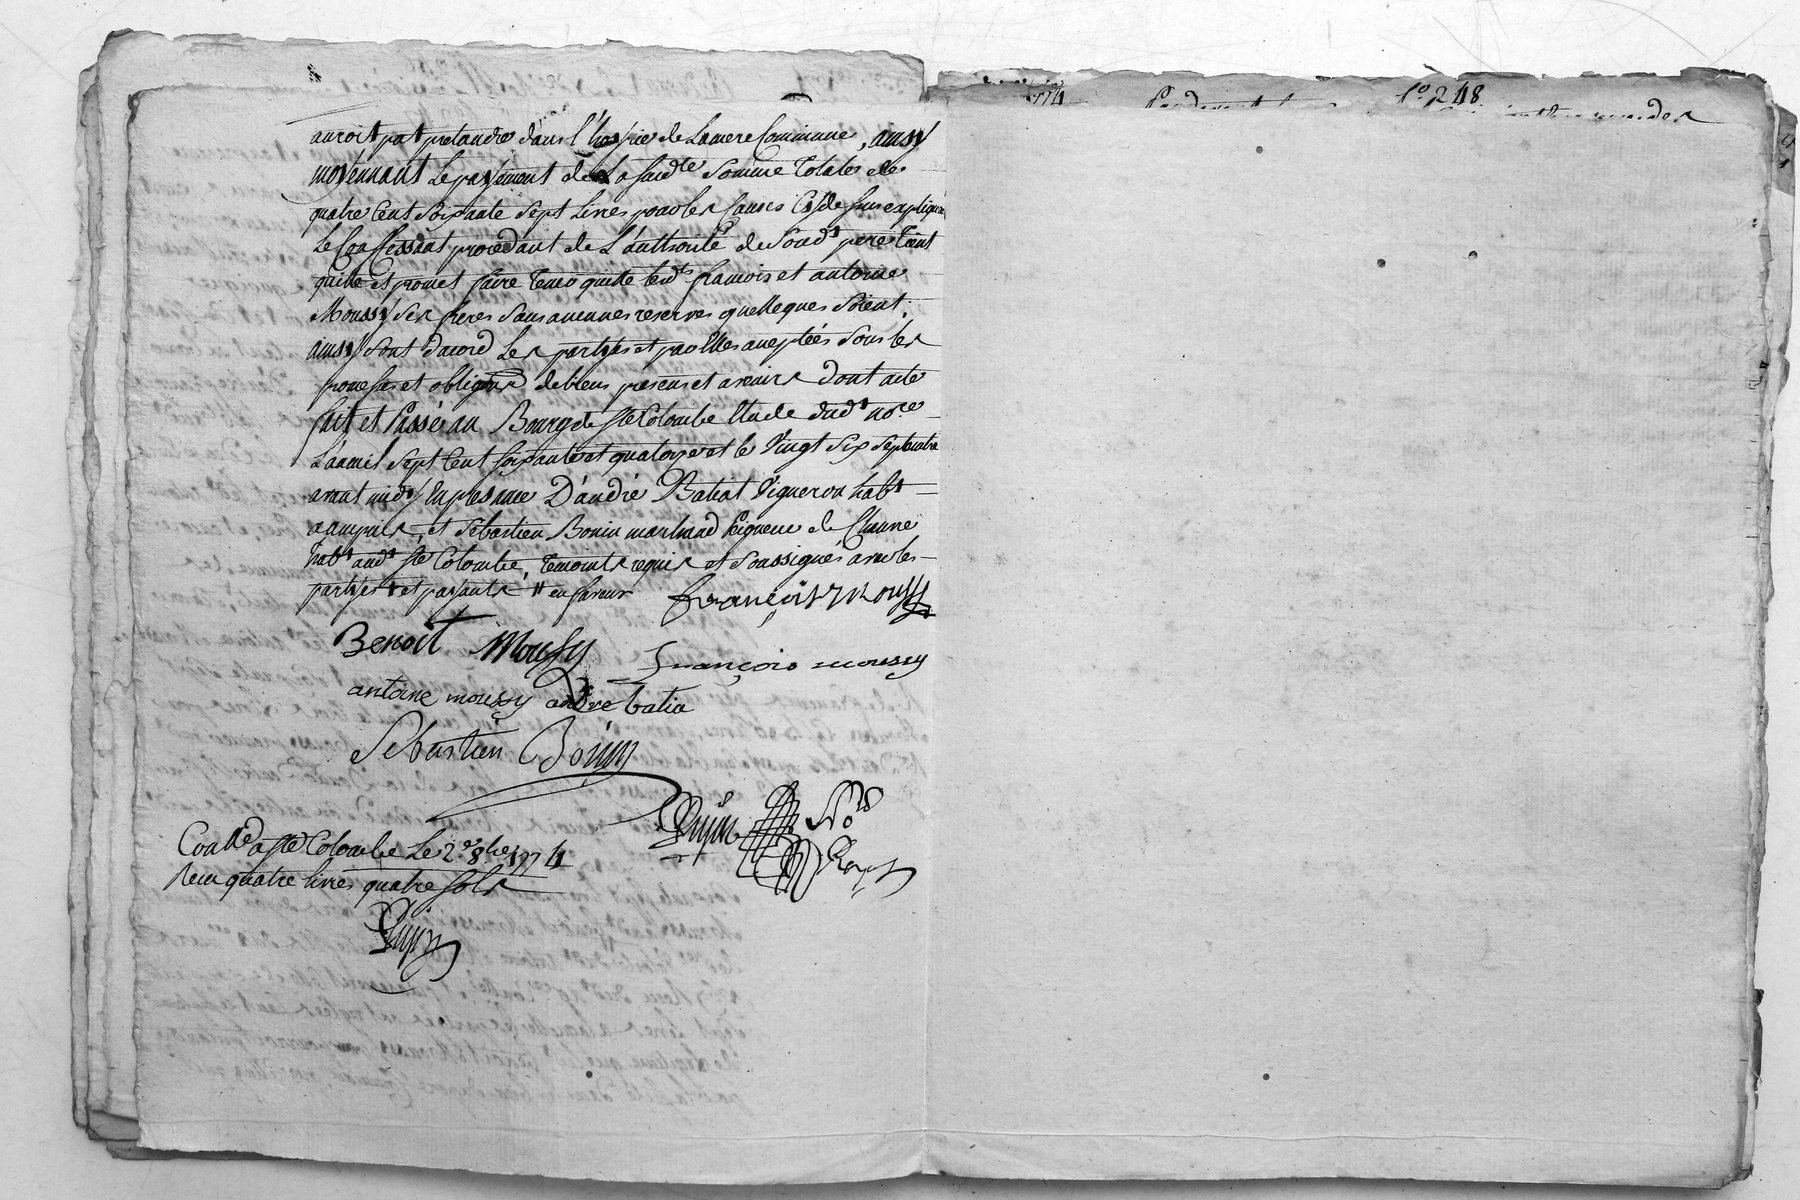 auroit pat pretandre dans l'hospie de Lamere Commune, ainsy
moyennant Le payement de La susdte Somme Totales de
quatre Cent Soixante Sept Livres pour les Causes Cydessus expliquée
Le Confessant procedant de L'authorité de Soudt pere Tient
quitte et promet faire Tenir quitte lesdts francois et antoine
Moussy Ses freres Sans aucunes reserves quelleques Soient.
ainsy Sont dacord Les partyes et par Elles acceptées Sous les
promesses et obligons de biens presens et avenirs dont acte
fait et Passé au Bourg de Ste Colombe Etude dudt nore
L'an mil Sept Cent Soixante et quatorze et le Vingt Six Septembre
avant midy En presance D'andré Batiat Vigneron habt
et Sebastien Bonin marchand Peigneur de Chanvre
habt audt Ste Colombe, Temoins requis et Soussignés avec les
partyes et passants en faveur
françois Moussy
Benoit Moussy
François moussy
antoine moussy andre batia
Sebastien Bonin
Pupin No Ro
Conlle a Ste Colombe Le 2e 8bre 1774
Recu quatre livres quatre sols
Pupin
1774
fo. 248